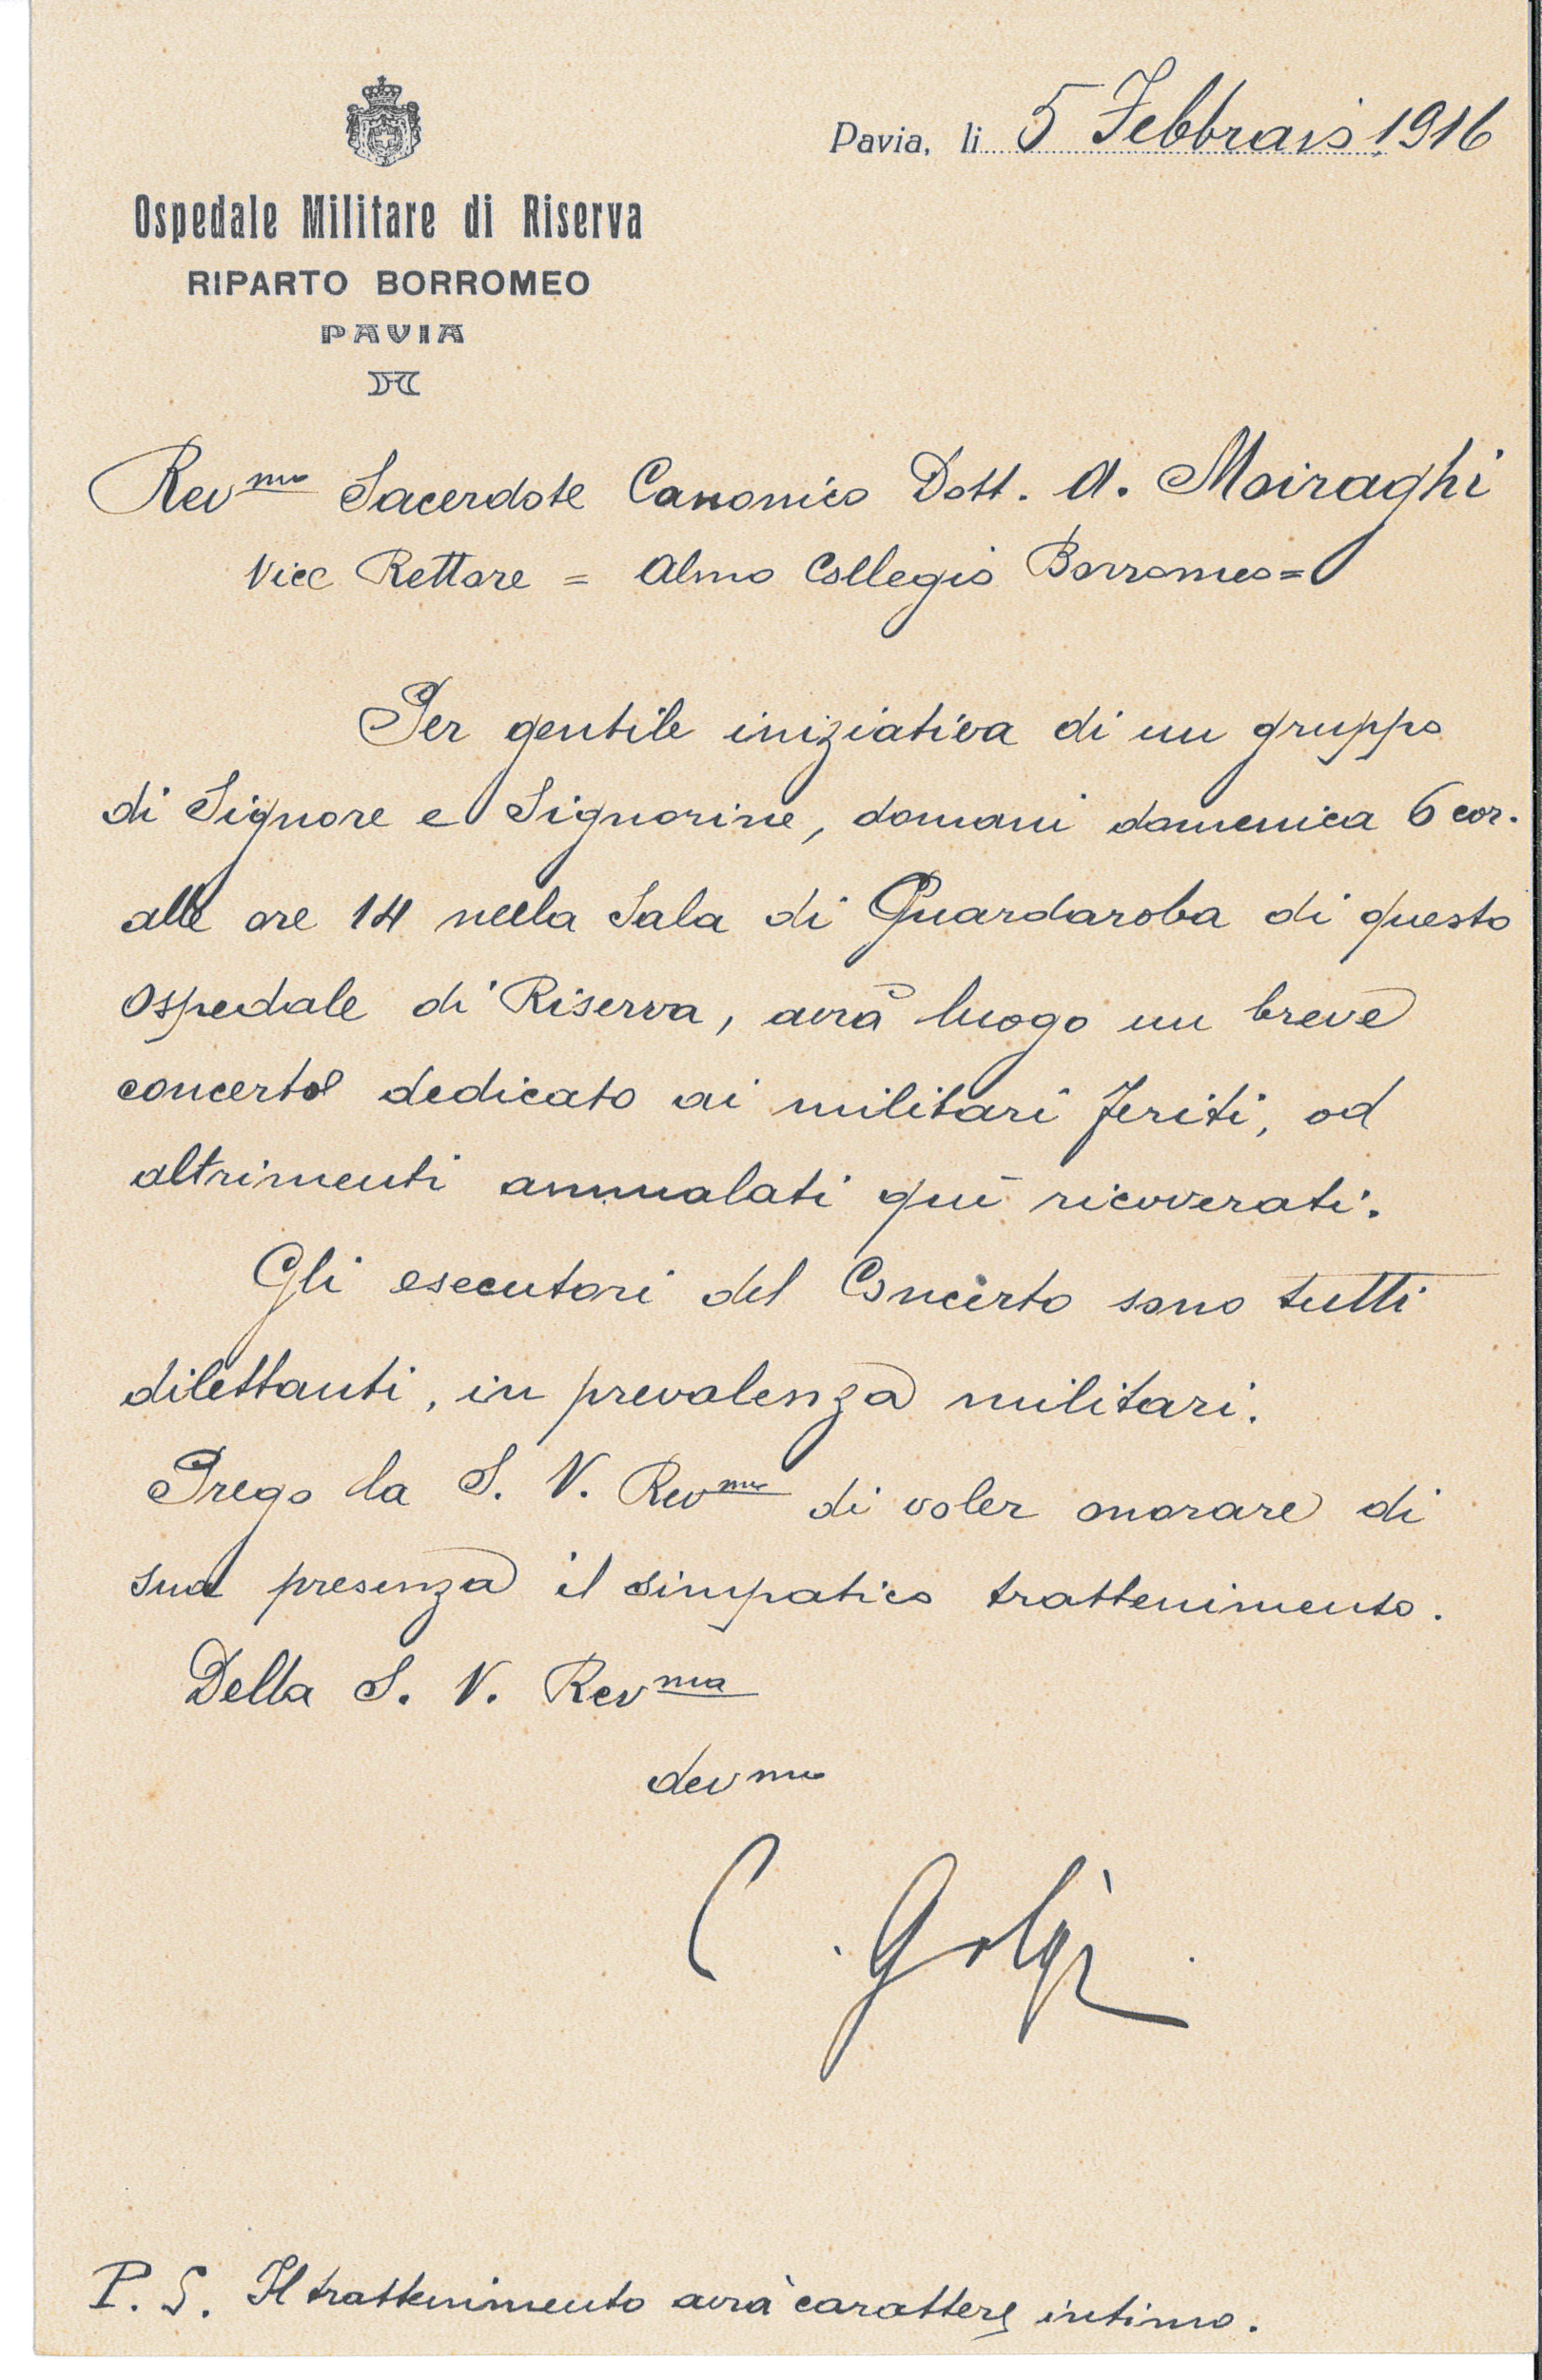 Pavia, li 5 Febbraio 1916
Ospedale Militare di Riserva
RIPARTO BORROMEO
PAVIA
Rev.mo Sacerdote Canonico Dott. A. Moiraghi
Vice Rettore = Almo Collegio Borromeo =
Per gentile iniziativa di un gruppo
di Signore e Signorine, domani domenica 6 cor.
alle ore 14 nella Sala di Guardaroba di questo
Ospedale di Riserva, avrà luogo un breve
concerto dedicato ai militari feriti, od
altrimenti ammalati quì ricoverati.
Gli esecutori del Concerto sono tutti
dilettanti, in prevalenza militari.
Prego la S. V. Revma di voler onorare di
sua presenza il simpatico trattenimento.
Della S. V. Revma
devmo
C. Golgi
P. S. Il trattenimento avrà carattere intimo.